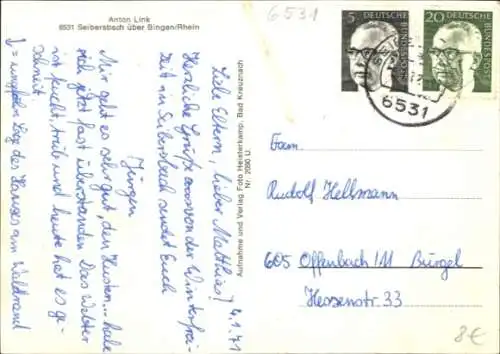 Anton Link
6531 Seibersbach über Bingen/Rhein
6531
5
DEUTSCHE BUNDESPOST
20
DEUTSCHE BUNDESPOST
6531
4.1.71
Liebe Eltern, lieber Matthias!
Herzliche Grüße von der Winterfrei-
zeit in Seibersbach sendet Euch
Jürgen
Mir geht es sehr gut, den Husten habe
ich jetzt fast überstanden. Das Wetter
ist feucht, trüb und heute hat es ge-
schneit.
= ungefähre Lage des Hauses am Waldrand
Aufnahme und Verlag Foto Heisterkamp, Bad Kreuznach
Nr. 2090 U
Fam.
Rudolf Hellsmann
605 Offenbach/M Bürgel
Hessenstr. 33
8€